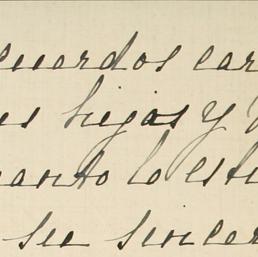 cuerdos car
es hijas y
anto lo esti
su sincer